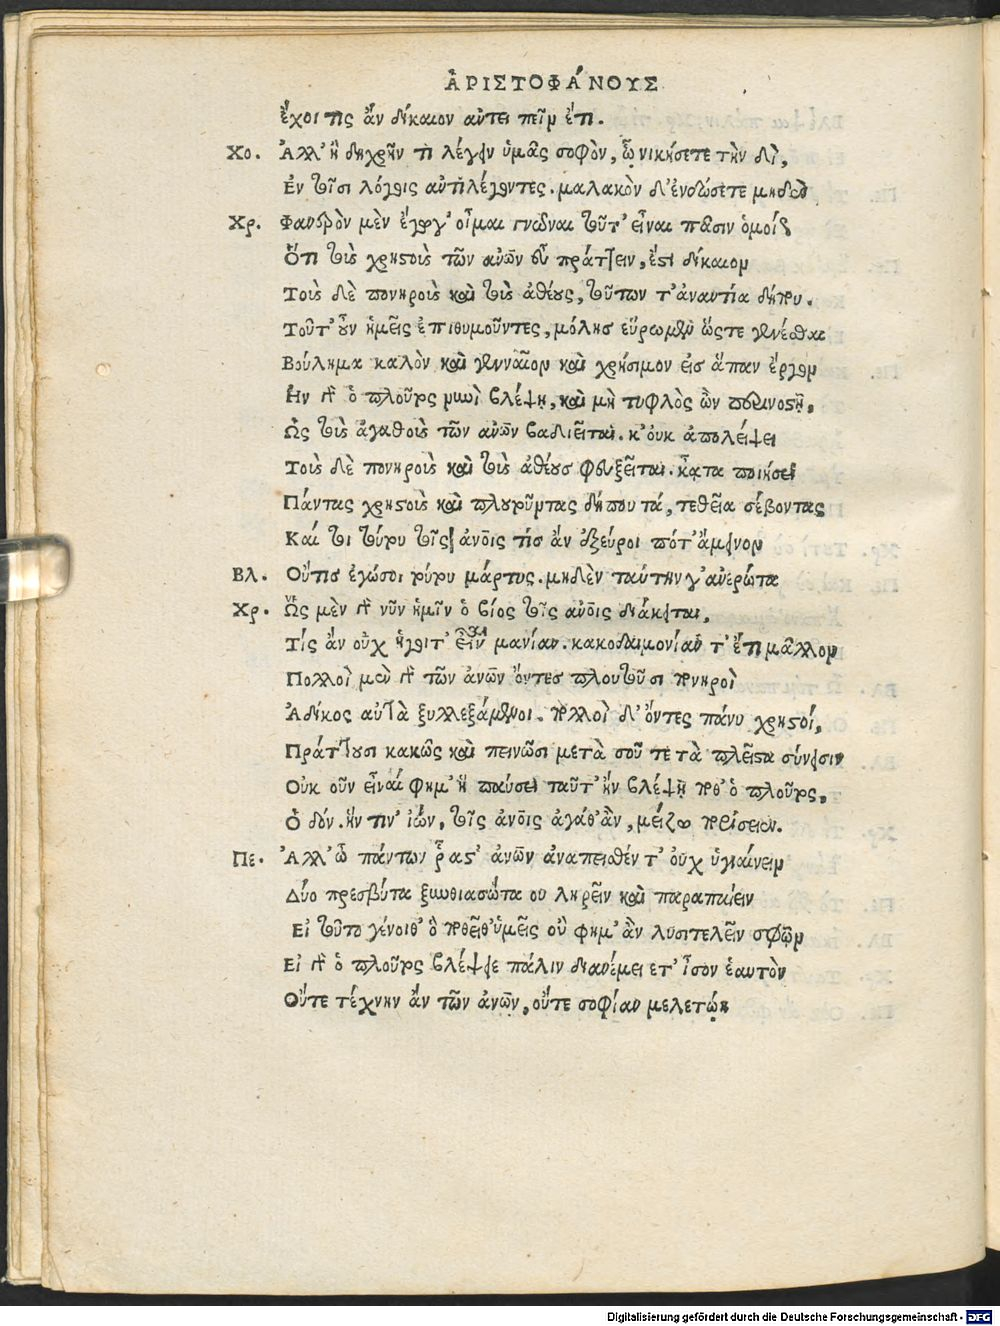 ἈΡΙΣΤΟΦΆΝΟΥΣ
ἔχοι τις ἂν δίκαιον ἀντειπεῖν ἔτι.
Χο. Ἀλλ' ἤδη χρῆν τι λέγειν ὑμᾶς σοφὸν, ᾧ νικήσετε τὴν δὶ,
Ἐν τοῖσι λόγοις ἀντιλέγοντες. μαλακὸν δ' ἐνδώσετε μηδὲν
Χρ. Φανερὸν μὲν ἔγωγ' οἶμαι γνῶναι τοῦτ' εἶναι πᾶσιν ὁμοίως
Ὅτι τοὺς χρηστοὺς τῶν ἀνῶν εὖ πράττειν, ἐστὶ δίκαιον
Τοὺς δὲ πονηροὺς καὶ τοὺς ἀθέους, τούτων τ' ἀναντία δήπου.
Τοῦτ' οὖν ἡμεῖς ἐπιθυμοῦντες, μόλις εὕρομεν ὥστε γενέσθαι
Βούλημα καλὸν καὶ γενναῖον καὶ χρήσιμον εἰς ἅπαν ἔργον
Ἢν γὰρ ὁ πλοῦτος νυνὶ βλέψῃ, καὶ μὴ τυφλὸς ὢν περινοστῇ,
Ὡς τοὺς ἀγαθοὺς τῶν ἀνῶν βαδιεῖται. κ' οὐκ ἀπολείψει
Τοὺς δὲ πονηροὺς καὶ τοὺς ἀθέους φευξεῖται. κᾆτα ποιήσει
Πάντας χρηστοὺς καὶ πλουτοῦντας δήπου τά, τε θεῖα σέβοντας
Καί τοι τούτου τοῖς ἀνοις τίς ἂν ἐξεύροι πότ' ἄμεινον
Βλ. Οὔτις ἐγώ σοι τούτου μάρτυς. μηδὲν ταύτην γ' ἀνερώτα
Χρ. Ὡς μὲν γὰρ νῦν ἡμῖν ὁ βίος τοῖς ἀνοις διάκειται,
Τίς ἂν οὐχ ἡγοῖτ' εἶναι μανίαν. κακοδαιμονίαν τ' ἔτι μᾶλλον
Πολλοὶ μὲν γὰρ τῶν ἀνῶν ὄντες πλουτοῦσι πονηροὶ
Ἀδίκως αὐτὰ ξυλλεξάμενοι. πολλοὶ δ' ὄντες πάνυ χρηστοί,
Πράττουσι κακῶς καὶ πεινῶσι μετὰ σοῦ τε τὰ πλεῖστα σύνεισιν
Οὐκ οὖν εἶναί φημ' ἢ παύσει ταῦτ' ἢν βλέψῃ ποθ' ὁ πλοῦτος,
Ὁδόν. ἥν τιν' ἰών, τοῖς ἀνοις ἀγάθ' ἂν, μείζω πορίσειεν.
Πε. Ἀλλ' ὦ πάντων ῥᾷστ' ἀνῶν ἀναπεισθέντ' οὐχ ὑγιαίνειν
Δύο πρεσβύτα ξυνθιασώτα ου ληρεῖν καὶ παραπαίειν
Εἰ τοῦτο γένοιθ' ὃ ποθεῖθ' ὑμεῖς οὔ φημ' ἂν λυσιτελεῖν σφῷν
Εἰ γὰρ ὁ πλοῦτος βλέψειε πάλιν διανέμειέ τ' ἴσον ἑαυτὸν
Οὔτε τέχνην ἂν τῶν ἀνῶν, οὔτε σοφίαν μελετῴη
Digitalisierung gefördert durch die Deutsche Forschungsgemeinschaft - DFG